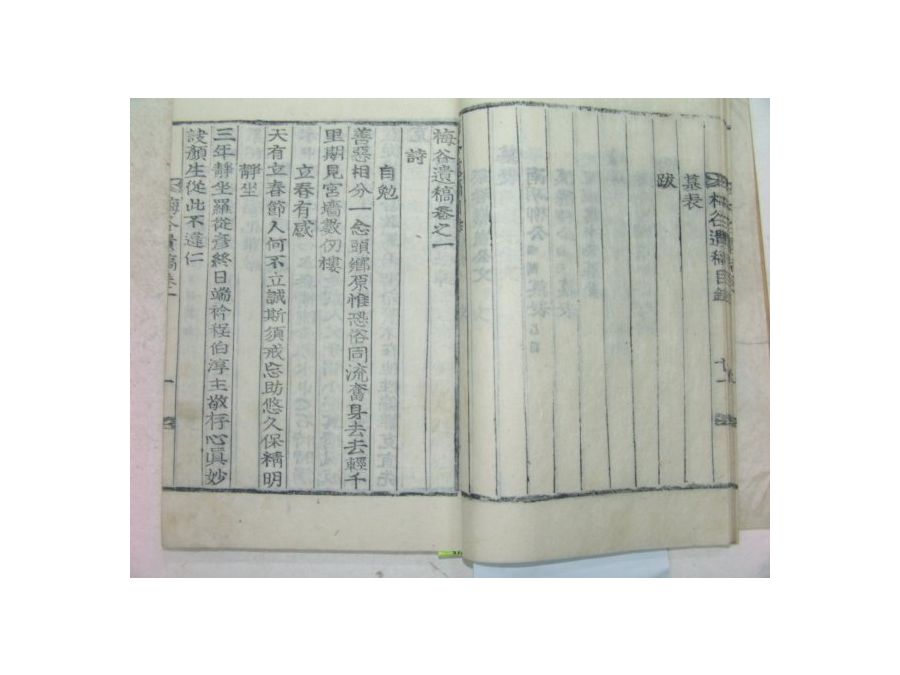 梅谷遺稿目錄
墓表
跋
十一
梅谷遺稿卷之一
詩
自勉
善惡相分一念頭鄉原惟恐俗同流奮身去去輕千
里期見宮墻數仞樓
立春有感
天有立春節人何不立誠斯須戒忘助悠久保精明
靜坐
三年靜坐羅從彥終日端衿程伯淳主敬存心眞妙
訣顏生從此不違仁
梅谷遺稿卷一
一